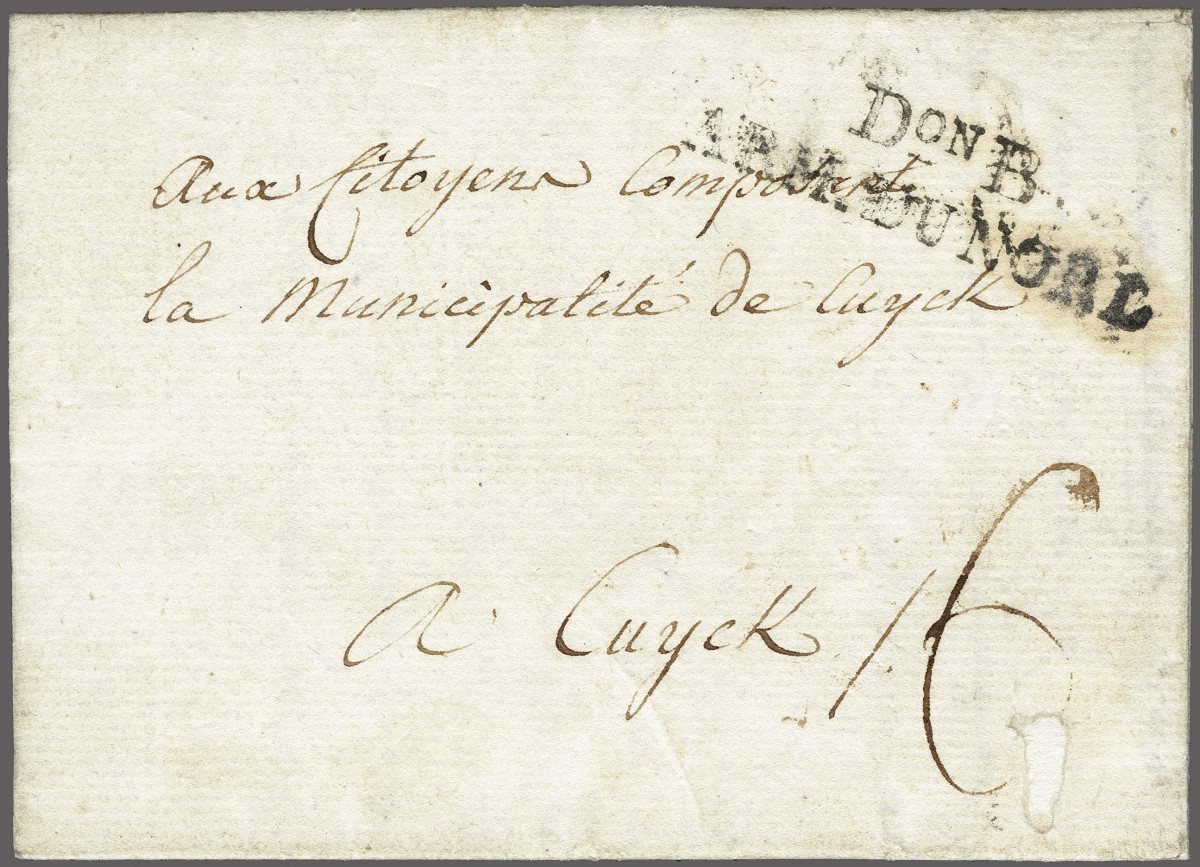 DON B.
ARM. DU NORD
Aux Citoyens Composant
la Municipalité de Cuyck
A Cuyck
16